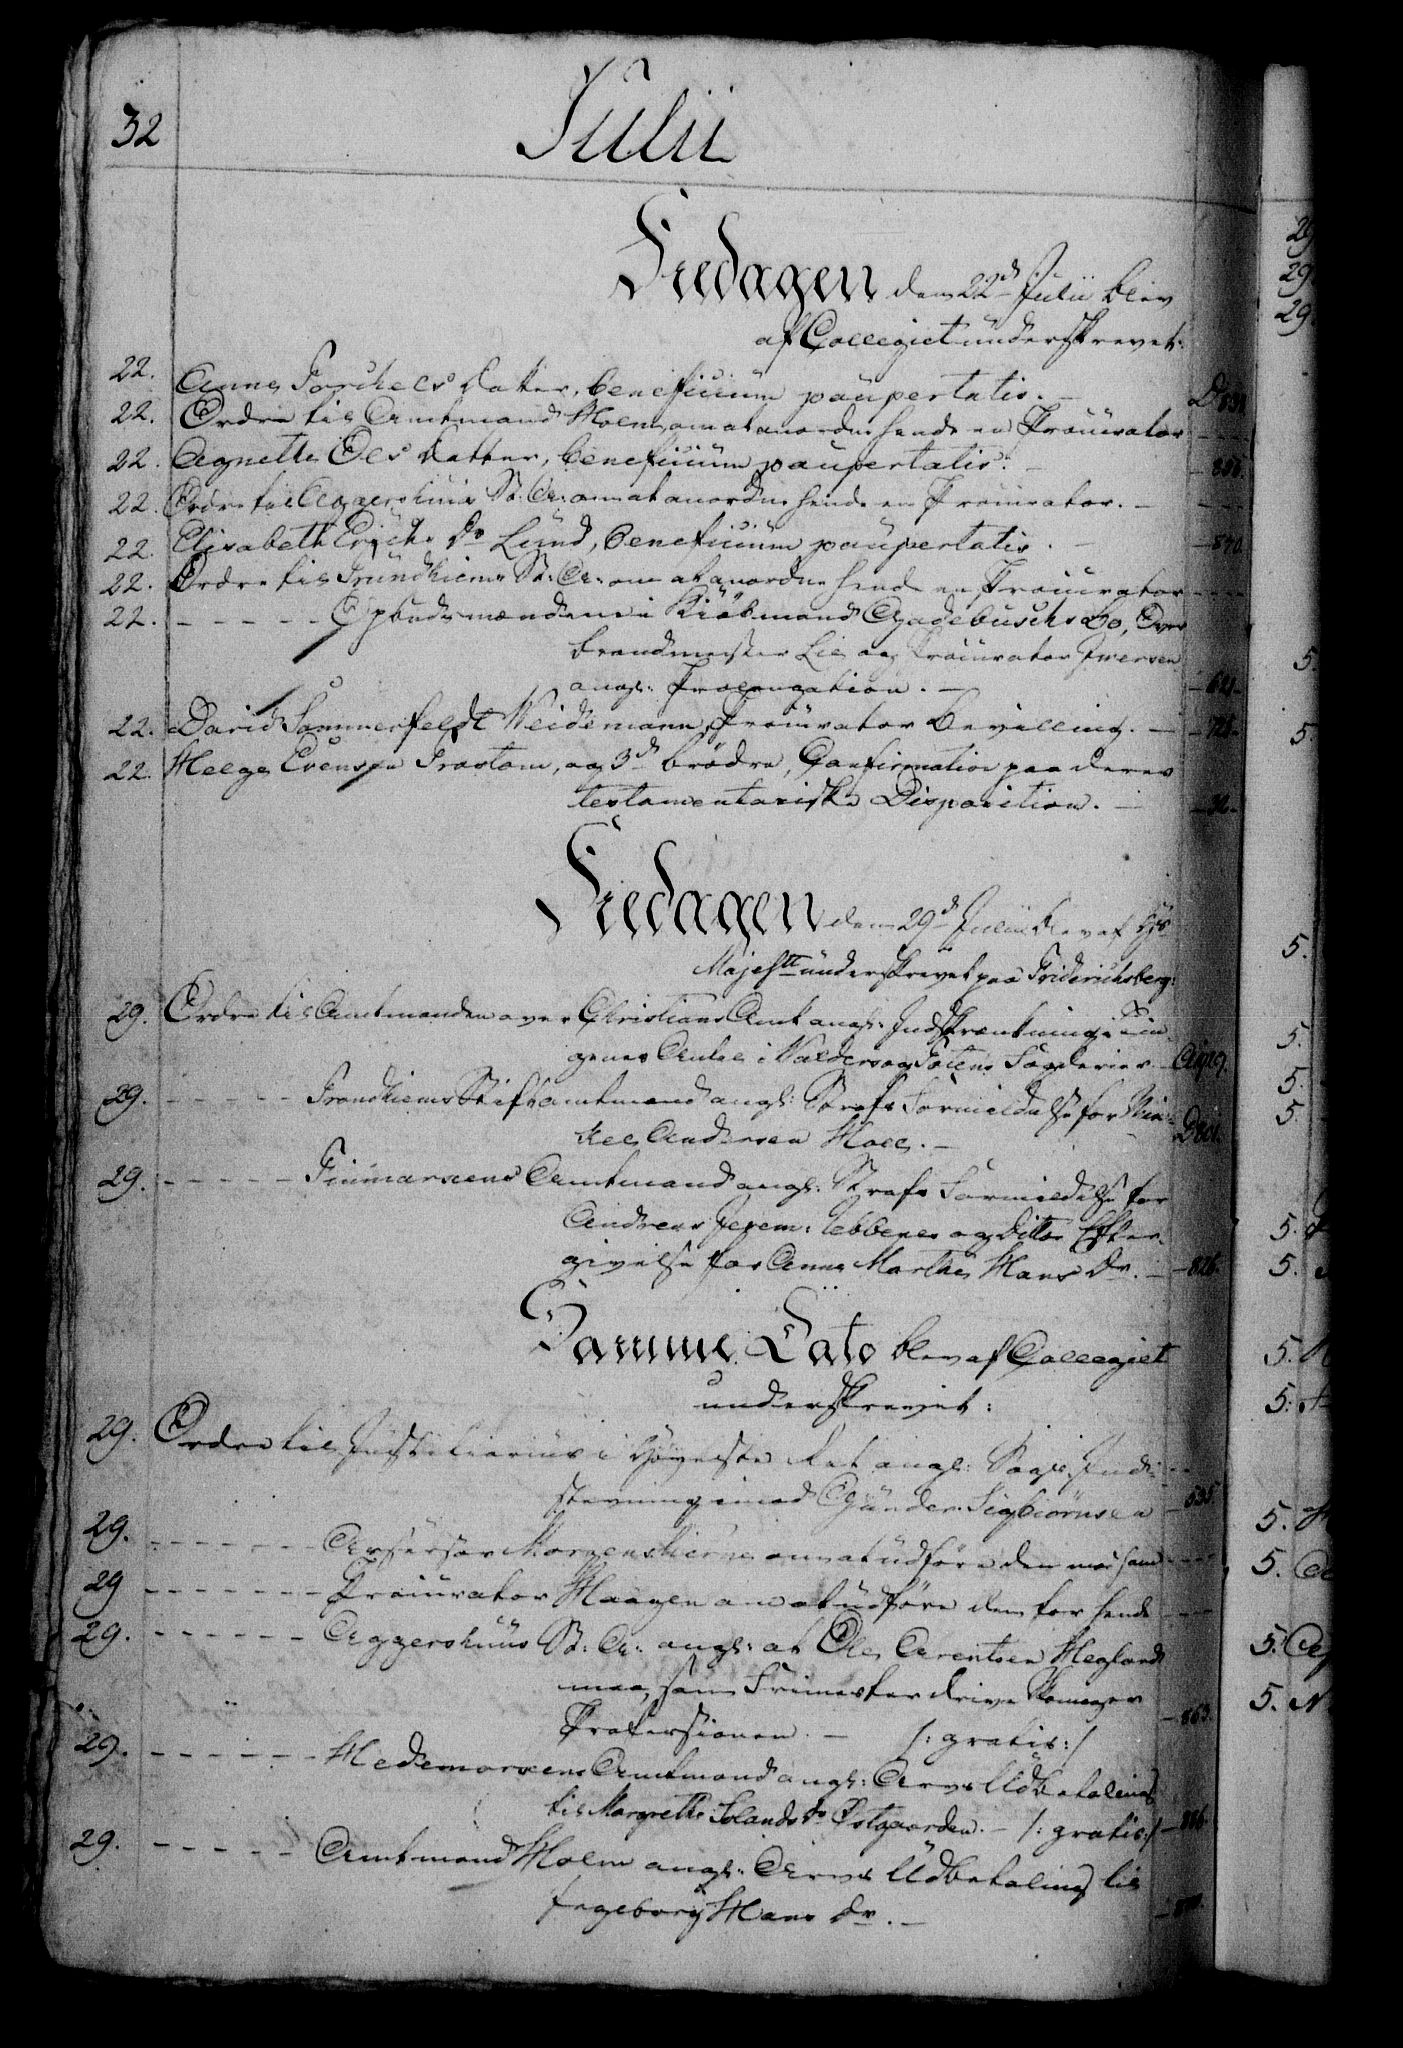 32
Julii
Fredagen den 22d Julii blev
af Collegiet underskrevet:
22. Anne Torkels Datter, beneficium paupertatis. —
22. Ordre til Amtmand Holm, om at anordne hende en Procurator - - -
22. Agnette Ols Datter, beneficium paupertatis. —
22. Ordre til Aggershuus St: A: om at anordne hende en Procurator. — - - -
22. Elisabeth Erichs Dr Lund, beneficium paupertatis. — — 870.
22. Ordre til Trundhiems St: A: om at anordne hende en Procurator - - -
22. - - - - - Opbudsmændene i Kiöbmand Gadebuschs Bo, Over
brandmester Lie og Procurator Iversen
angl: Prolongation. — — 621 -
22. David Sommerfeldt Weidemann, Procurator bevilling. — — 721 -
22. Helge Evensen Trostom, og 3de brödre, Confirmation paa deres
testamentariske Disposition. — — 32 -
Fredagen den 29d Julii blev af Hs
Majestt underskrevet paa Friderichsberg:
29. Ordre til Amtmanden over Christians Amt angl: Indskrænkning i Tin
genes Antal i Valders og Totens Fogderier.
29. - - - - - Trondhiems Stiftamtmand angl: Straf Formildelse for
Andersen Moe. — D801.
29. - - - - - Finmarkens Amtmand angl: Straf Formildelse for
Andreas Jerem: Ebbesen og Ditto Efter-
givelse for Anne Marthe Hans Dr. — — 826.
Samme Dato blev af Collegiet
underskrevet:
29. Ordre til Justitiarius i Höyeste Ret angl: Sags Ind-
stevning imod Gunder Sigbiörnsen — 535.
29. - - - - - - Assessor Morgenstierne om at udföre den mod ham - - -
29 - - - - - - - Procurator Haagen om at udföre den for hende - - -
29. - - - - - - Aggershuus St: A: angl: at Ole Arentsen Hegland
maa, som Frimester drive Skomager
Professionen. — /: gratis :/ — 863.
29. - - - - - - Hedemarkens Amtmand angl: Arvs Udbetaling
til Margrethe Erlands Dr Östgaarden. — /: gratis :/ — 886.
29. - - - - - Amtmand Holm angl: Arvs Udbetaling til
Ingeborg Hans Dr. —
29
29
29
5.
5.
5.
5.
5.
5.
5.
5.
5.
5.
5.
5.
5.
5.